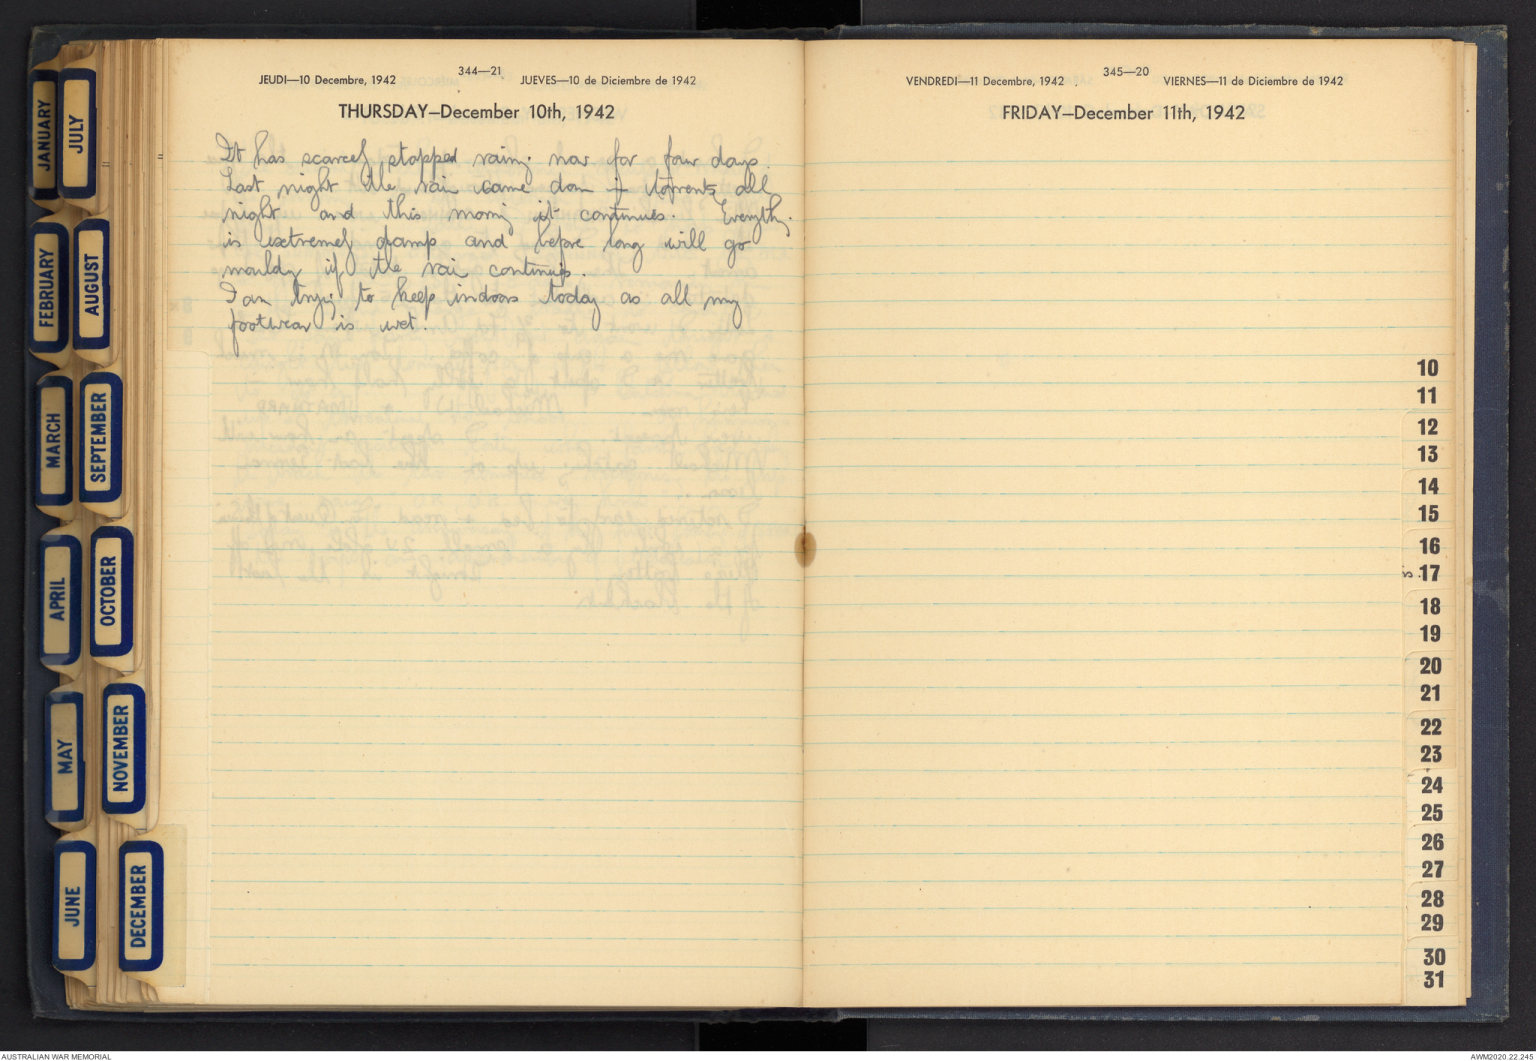 JEUDI—10 Decembre, 1942
344—21
JUEVES—10 de Diciembre de 1942
THURSDAY—December 10th, 1942
It has scarcely stopped raining now for four days.
Last night the rain came down in torrents all
night and this morning it continues. Everything
is extremely damp and before long will go
mouldy if the rain continues.
I am trying to keep indoors today as all my
footwear is wet.
VENDREDI—11 Decembre, 1942
345—20
VIERNES—11 de Diciembre de 1942
FRIDAY—December 11th, 1942
JANUARY
JULY
FEBRUARY
AUGUST
MARCH
SEPTEMBER
APRIL
OCTOBER
MAY
NOVEMBER
JUNE
DECEMBER
10
11
12
13
14
15
16
17
18
19
20
21
22
23
24
25
26
27
28
29
30
31
AUSTRALIAN WAR MEMORIAL
AWM2020.22.245